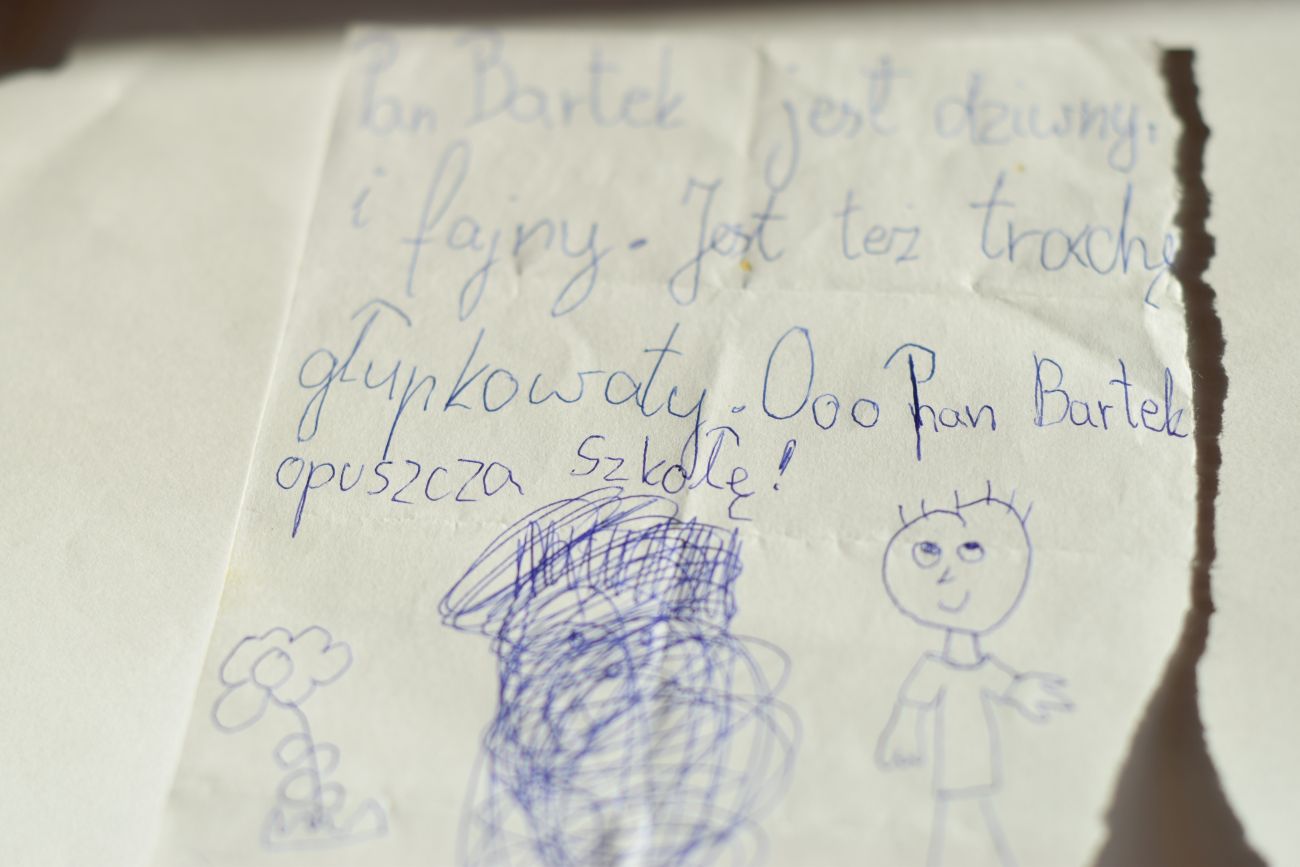 Pan Bartek jest dziwny.
i fajny. Jest też trochę
głupkowaty. Ooo Pan Bartek
opuszcza szkołę!